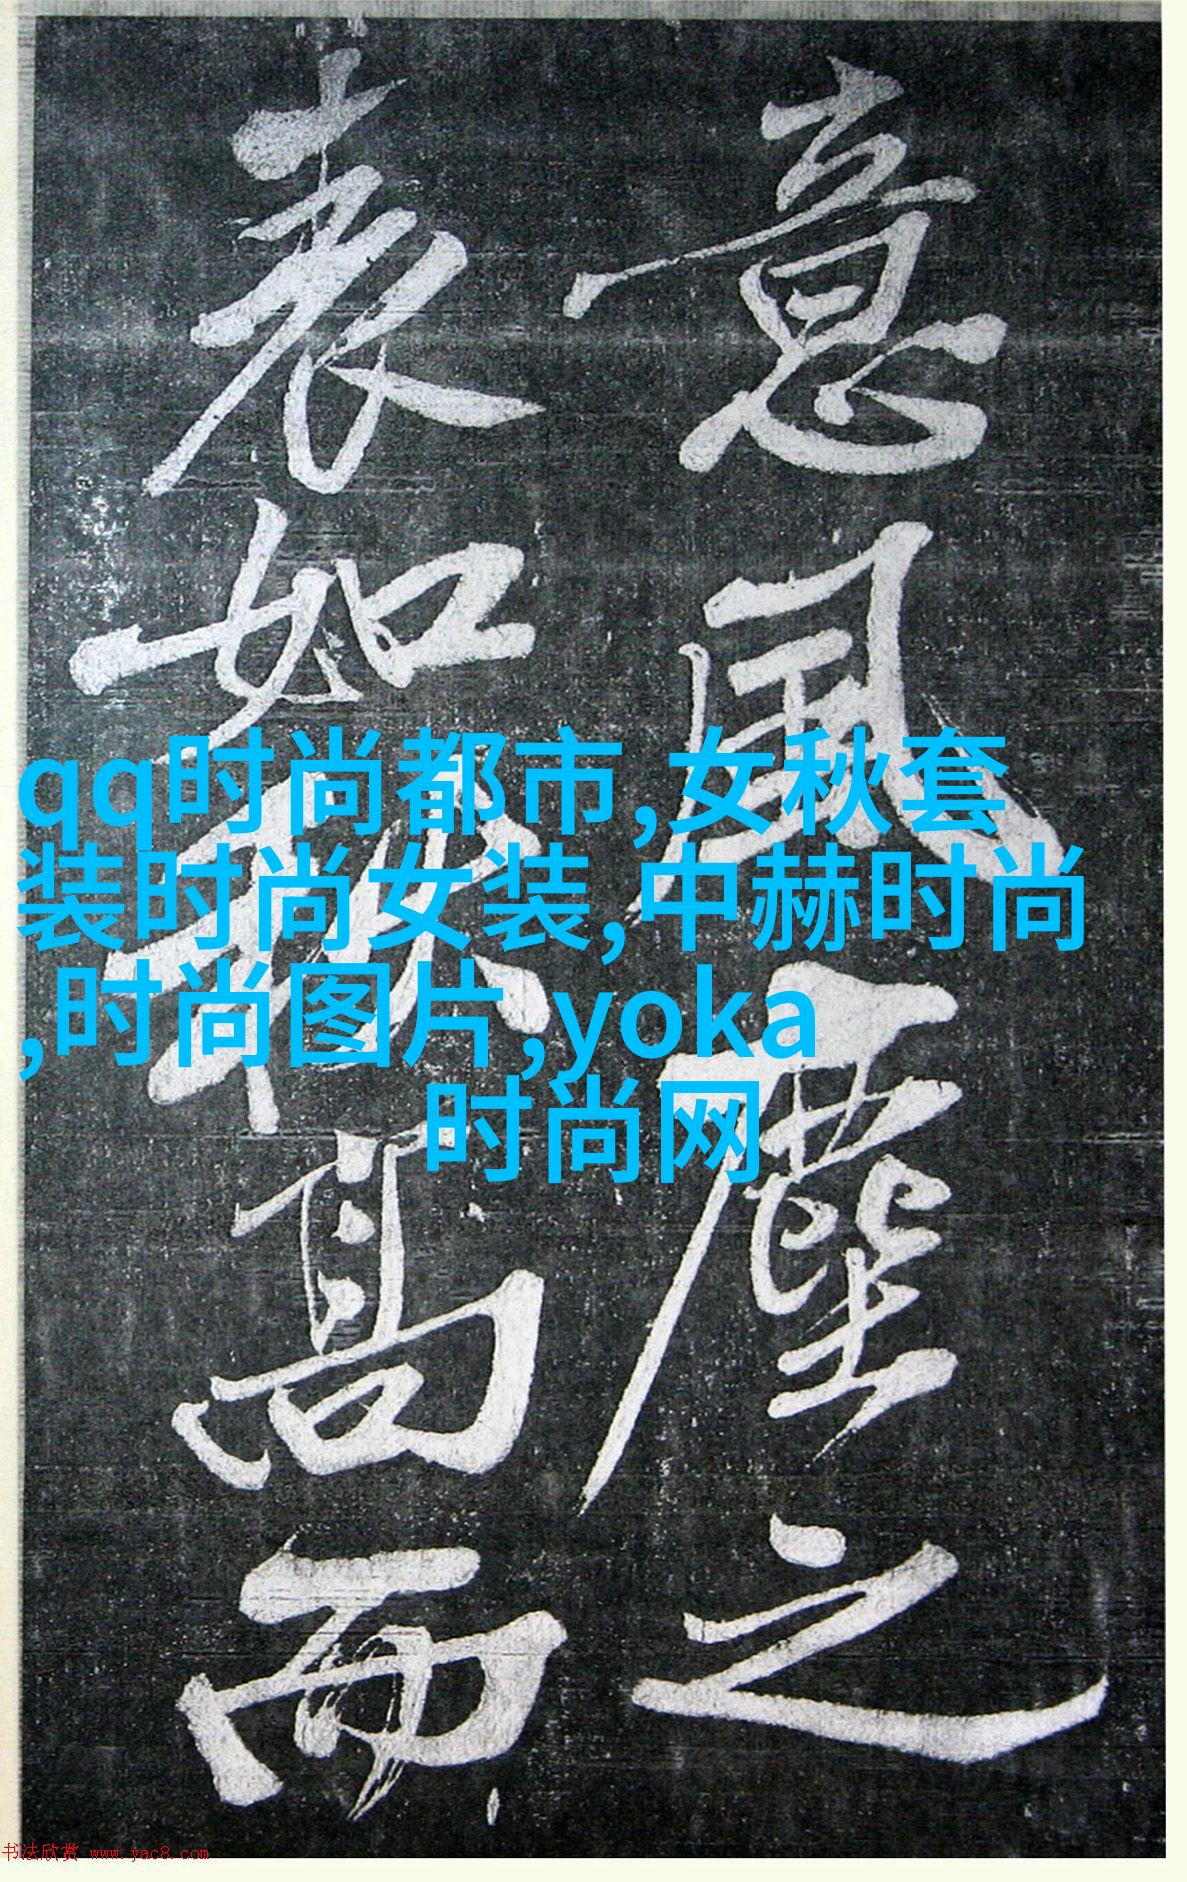 意風塵之
表如秋高而
qq时尚都市,女秋套
装时尚女装,中赫时尚
,时尚图片,yoka
时尚网
书法欣赏 www.yac8.com